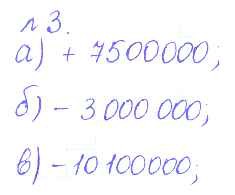 № 3.
а) + 7500000;
б) – 3 000 000;
в) – 10 100000;